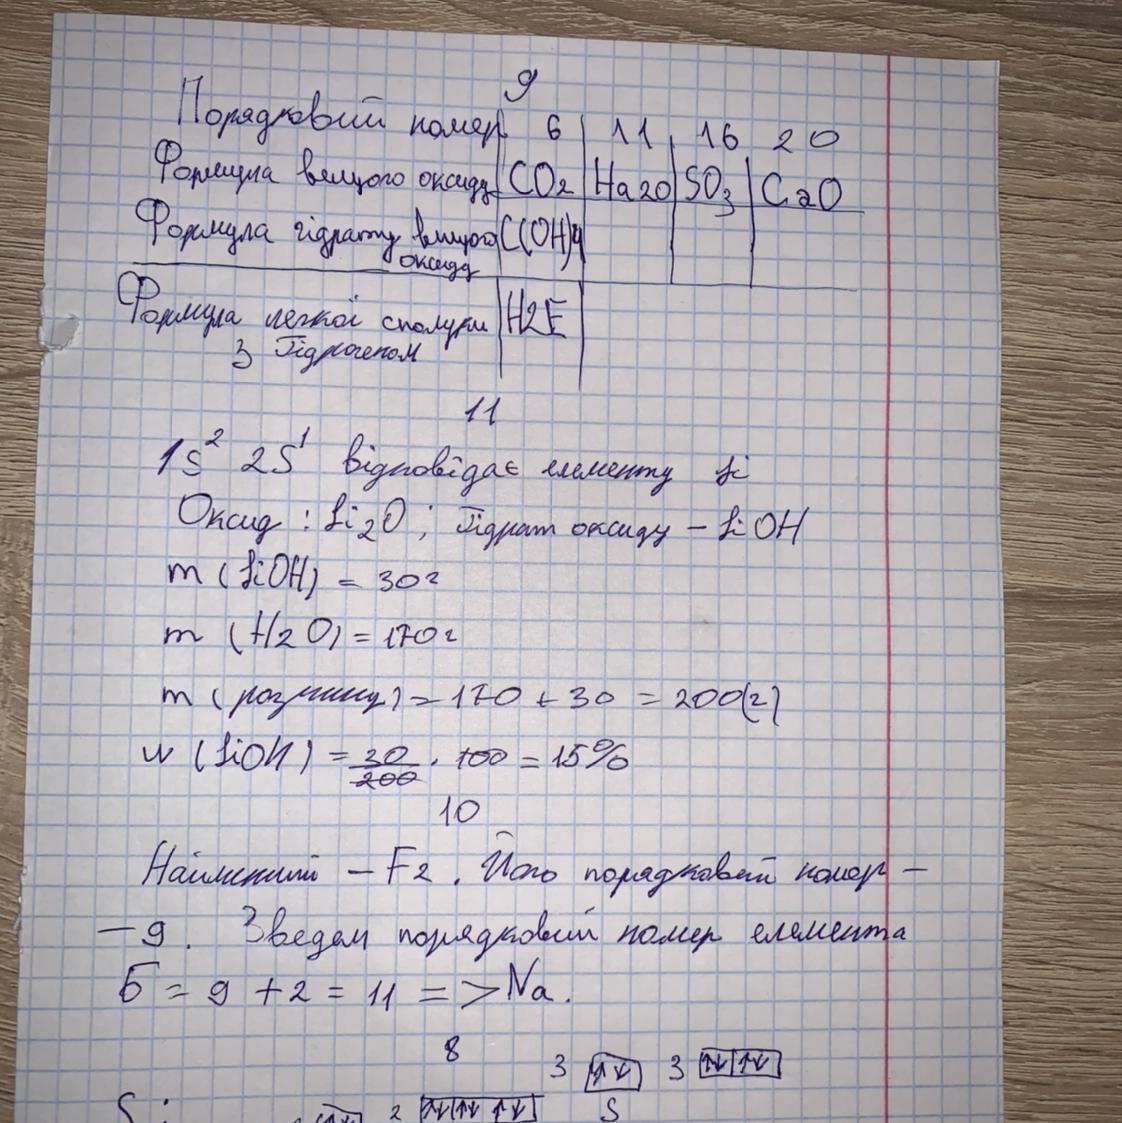 9
Порядковий номер 6 11 16 20
Формула вищого оксиду CO2 Na2O SO3 CaO
Формула гідрату вищого C(OH)4
оксиду
Формула легкої сполуки H2E
з Гідрогеном
11
1s² 2s¹ відповідає елементу Li
Оксид : Li2O ; Гідрат оксиду – LiOH
m (LiOH) = 30г
m (H2O) = 170г
m (розчину) = 170 + 30 = 200(г)
w (LiOH) = 30/200 · 100 = 15%
10
Найлегший – F2. Його порядковий номер –
– 9. Зведем порядковий номер елемента
Б = 9 + 2 = 11 => Na.
8
3 ↑↓ 3 ↑↓ ↑↓
Si 2 ↑↓ ↑↓ ↑↓ S